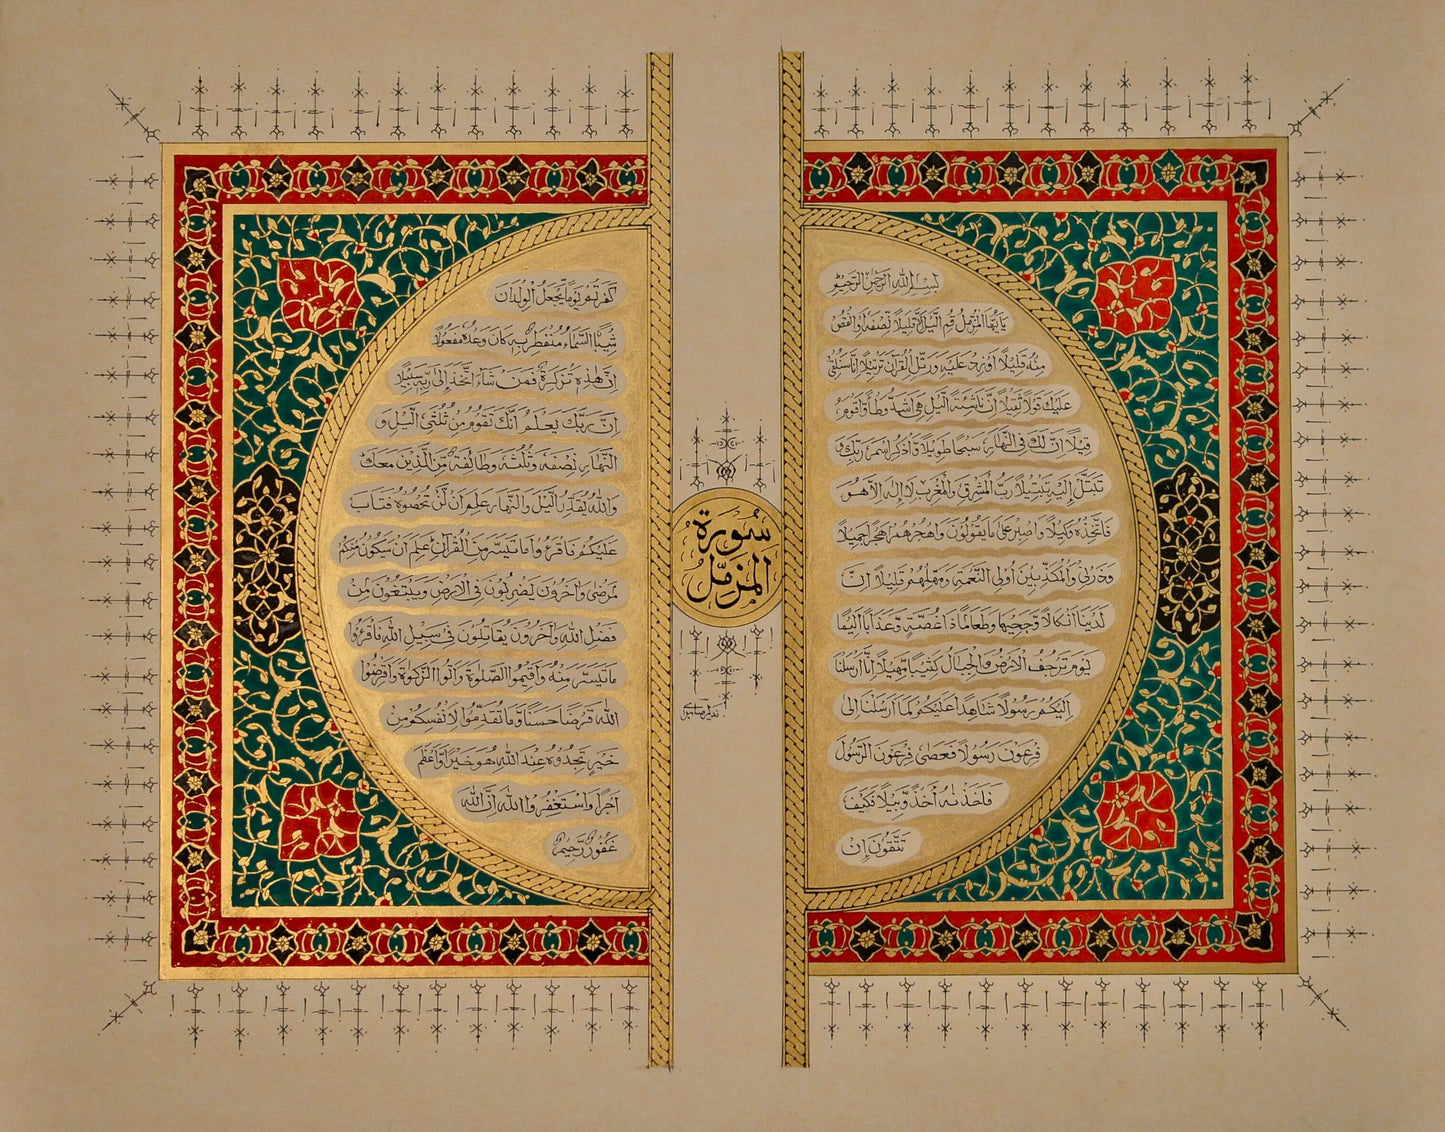 سُورَة
المُزَمِّل
بِسْمِ اللهِ الرَّحْمٰنِ الرَّحِيمِ
يَا أَيُّهَا الْمُزَّمِّلُ قُمِ الَّيْلَ إِلَّا قَلِيلًا نِصْفَهُ أَوِ انْقُصْ
مِنْهُ قَلِيلًا أَوْ زِدْ عَلَيْهِ وَرَتِّلِ الْقُرْآنَ تَرْتِيلًا إِنَّا سَنُلْقِي
عَلَيْكَ قَوْلًا ثَقِيلًا إِنَّ نَاشِئَةَ الَّيْلِ هِيَ أَشَدُّ وَطْأً وَأَقْوَمُ
قِيلًا إِنَّ لَكَ فِي النَّهَارِ سَبْحًا طَوِيلًا وَاذْكُرِ اسْمَ رَبِّكَ وَ
تَبَتَّلْ إِلَيْهِ تَبْتِيلًا رَبُّ الْمَشْرِقِ وَالْمَغْرِبِ لَا إِلٰهَ إِلَّا هُوَ
فَاتَّخِذْهُ وَكِيلًا وَاصْبِرْ عَلَى مَا يَقُولُونَ وَاهْجُرْهُمْ هَجْرًا جَمِيلًا
وَذَرْنِي وَالْمُكَذِّبِينَ أُولِي النَّعْمَةِ وَمَهِّلْهُمْ قَلِيلًا إِنَّ
لَدَيْنَا أَنْكَالًا وَجَحِيمًا وَطَعَامًا ذَا غُصَّةٍ وَعَذَابًا أَلِيمًا
يَوْمَ تَرْجُفُ الْأَرْضُ وَالْجِبَالُ كَثِيبًا مَهِيلًا إِنَّا أَرْسَلْنَا
إِلَيْكُمْ رَسُولًا شَاهِدًا عَلَيْكُمْ كَمَا أَرْسَلْنَا إِلَى
فِرْعَوْنَ رَسُولًا فَعَصَى فِرْعَوْنُ الرَّسُولَ
فَأَخَذْنَاهُ أَخْذًا وَبِيلًا فَكَيْفَ
تَتَّقُونَ إِنْ
كَفَرْتُمْ يَوْمًا يَجْعَلُ الْوِلْدَانَ
شِيبًا السَّمَاءُ مُنْفَطِرٌ بِهِ كَانَ وَعْدُهُ مَفْعُولًا
إِنَّ هٰذِهِ تَذْكِرَةٌ فَمَنْ شَاءَ اتَّخَذَ إِلَى رَبِّهِ سَبِيلًا
إِنَّ رَبَّكَ يَعْلَمُ أَنَّكَ تَقُومُ مِنْ ثُلُثَيِ الَّيْلِ وَ
النَّهَارِ نِصْفَهُ وَثُلُثَهُ وَطَائِفَةٌ مِنَ الَّذِينَ مَعَكَ
وَاللهُ يُقَدِّرُ الَّيْلَ وَالنَّهَارَ عَلِمَ أَنْ لَنْ تُحْصُوهُ فَتَابَ
عَلَيْكُمْ فَاقْرَءُوا مَا تَيَسَّرَ مِنَ الْقُرْآنِ عَلِمَ أَنْ سَيَكُونُ مِنْكُمْ
مَرْضَى وَآخَرُونَ يَضْرِبُونَ فِي الْأَرْضِ وَيَبْتَغُونَ مِنْ
فَضْلِ اللهِ وَآخَرُونَ يُقَاتِلُونَ فِي سَبِيلِ اللهِ فَاقْرَءُوا
مَا تَيَسَّرَ مِنْهُ وَأَقِيمُوا الصَّلٰوةَ وَآتُوا الزَّكٰوةَ وَأَقْرِضُوا
اللهَ قَرْضًا حَسَنًا وَمَا تُقَدِّمُوا لِأَنْفُسِكُمْ مِنْ
خَيْرٍ تَجِدُوهُ عِنْدَ اللهِ هُوَ خَيْرًا وَأَعْظَمَ
أَجْرًا وَاسْتَغْفِرُوا اللهَ إِنَّ اللهَ
غَفُورٌ رَحِيمٌ